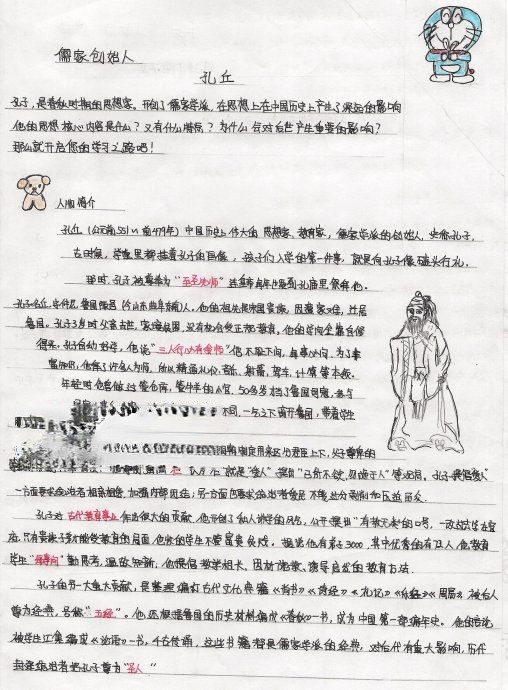 儒家创始人
孔丘
孔子,是春秋时期的思想家。开创了儒家学派,在思想上在中国历史上产生了深远的影响
他的思想核心内容是什么?又有什么特点?为什么会对后世产生重要的影响?
那么就开启你的学习之路吧!
人物简介
孔丘(公元前551~前479年)中国历史上伟大的思想家、教育家,儒家学派的创始人,史称孔子,
古时候,学堂里都挂着孔子的画像,孩子们入学的第一件事,就是向孔子像磕头行礼。
那时,孔子被尊称为"至圣先师"
孔子名丘,字仲尼,鲁国陬邑(今山东曲阜南)人。他的祖先是宋国贵族,因避
鲁国。孔子3岁时父亲去世,家境贫困,没有机会受正规教育,他的学问全靠自修
得来。孔子自幼好学,他说"三人行必有我师"他不耻下问,
富知识,他拜了许多人为师,所以精通礼仪、音乐、射箭、驾车、计算等本领。
年轻时他曾做过管仓库,管牛羊的小官,50多岁当了鲁国司寇,参与
不同,一气之下离开鲁国,带着学生
就是"爱人"提出"己所不欲,勿施于人"等
一方面要求统治者相亲相爱,加强内部团结;另一方面也要求统治者爱民 不要过分剥削和压迫百姓
孔子对古代教育事业作出很大的贡献,他开创了私人讲学的风气,公开提出"有教无类"的口号,
据说他有弟子3000,其中优秀的有七十二人,他教育
学生 勤思考,温故知新,他提倡教学相长、因材施教、诱导启发的教育方法
孔子的另一大重大贡献,是整理编订古代文化典籍《尚书》《诗经》《礼记》《乐经》《周易》被后人
尊为经典,号称"五经"。他还根据鲁国的历史材料编成《春秋》一书,成为中国第一部编年史。他的言论
被学生汇集编成《论语》一书,千古传诵,这些书籍都是儒家学派的经典,对后代有重大影响,历代
封建统治者把孔子尊为"圣人"